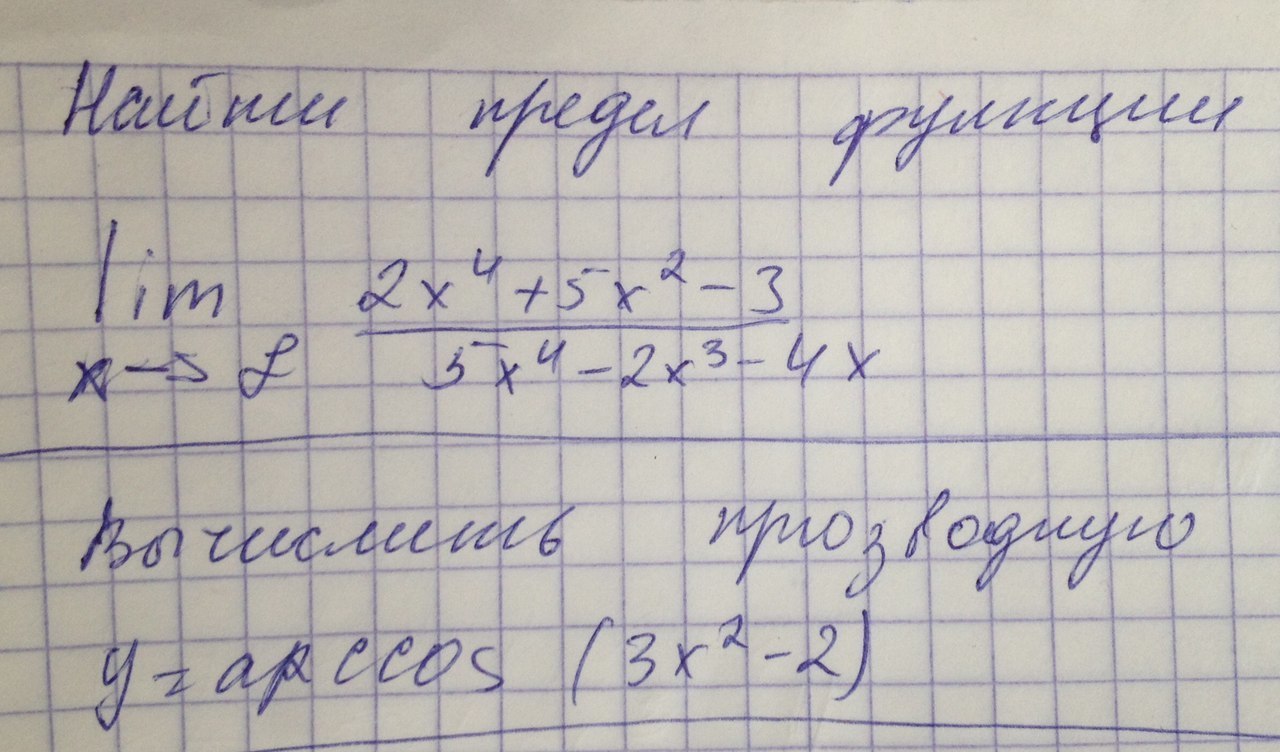 Найти предел функции
lim 2x⁴+5x²-3
x→ 5x⁴-2x³-4x
Вычислить прозводную
y=arccos (3x²-2)